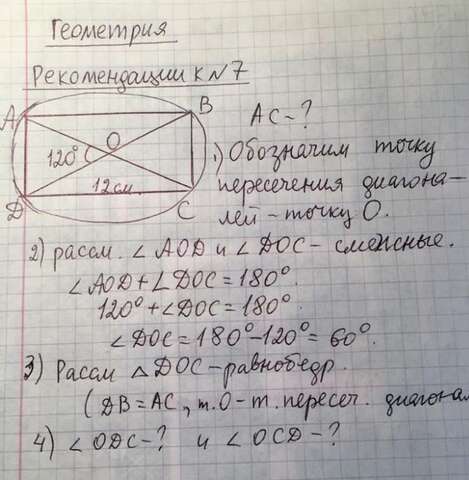 Геометрия
Рекомендации к №7
A
B
AC-?
O
120°
12 см.
D
C
1) Обозначим точку
пересечения диагона-
лей - точку O.
2) рассм. ∠AOD и ∠DOC - смежные.
∠AOD+∠DOC=180°
120°+∠DOC=180°
∠DOC=180°-120°=60°.
3) Рассм △DOC-равнобедр.
(DB=AC, т.O-т.пересеч. диагонал
4) ∠ODC-? и ∠OCD-?